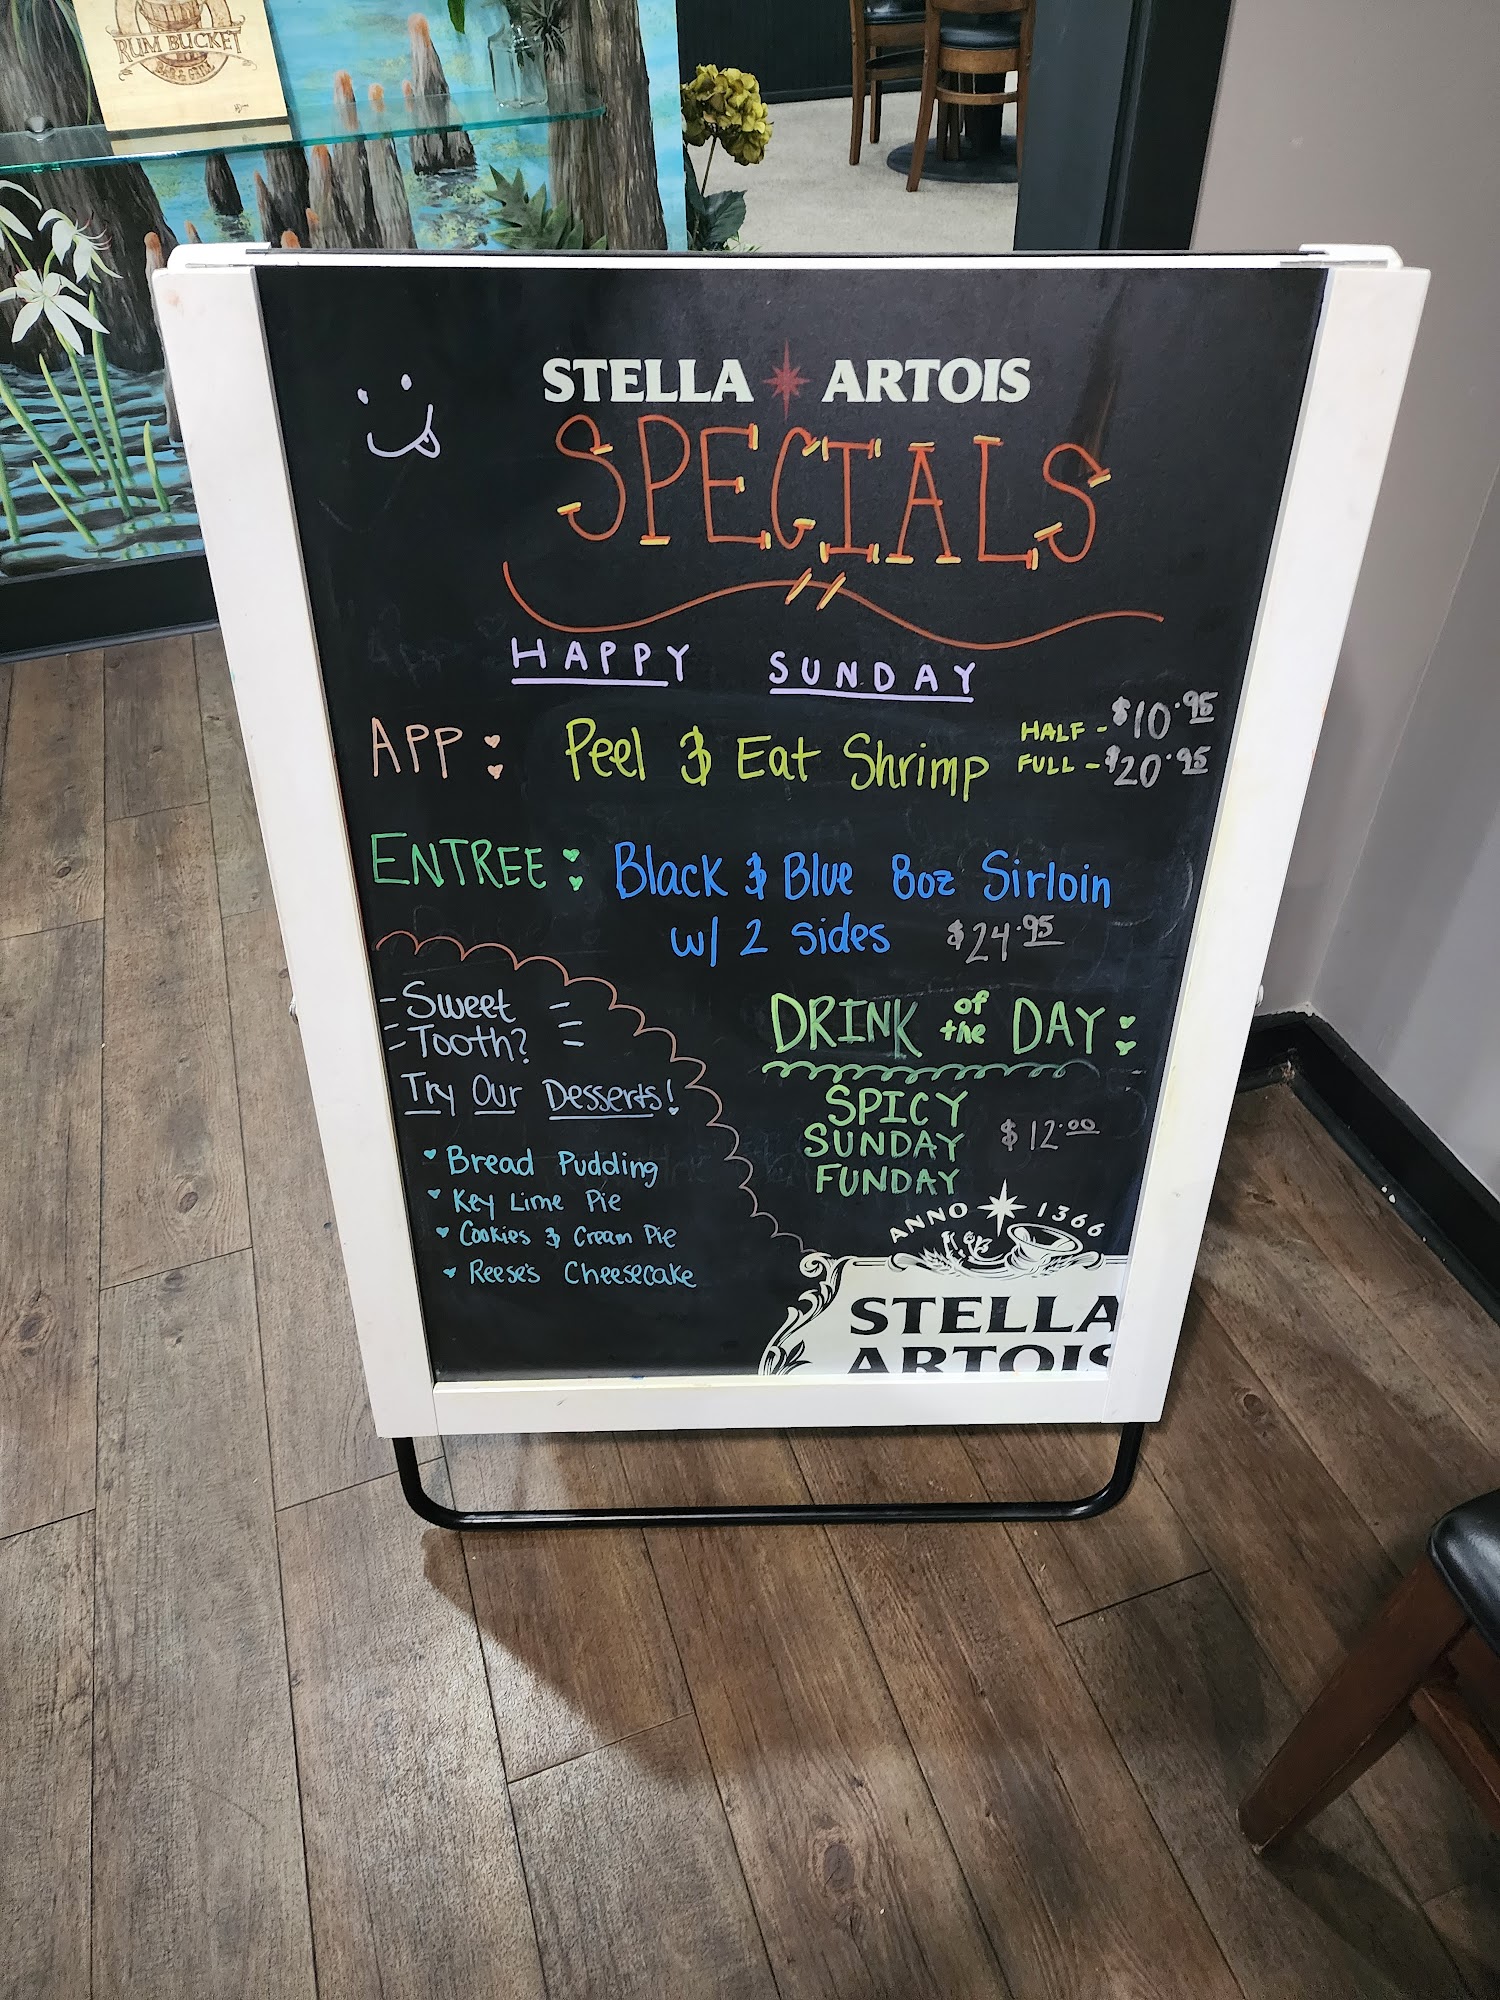 RUM BUCKET
BAR & GRILL
STELLA ARTOIS
SPECIALS
HAPPY SUNDAY
APP: Peel & Eat Shrimp HALF - $10.95
FULL - $20.95
ENTREE: Black & Blue 8oz Sirloin
w/ 2 sides $24.95
- Sweet
- Tooth?
Try Our Desserts!
Bread Pudding
Key Lime Pie
Cookies & Cream Pie
Reese's Cheesecake
DRINK of the DAY:
SPICY
SUNDAY $12.00
FUNDAY
ANNO 1366
STELLA
ARTOIS